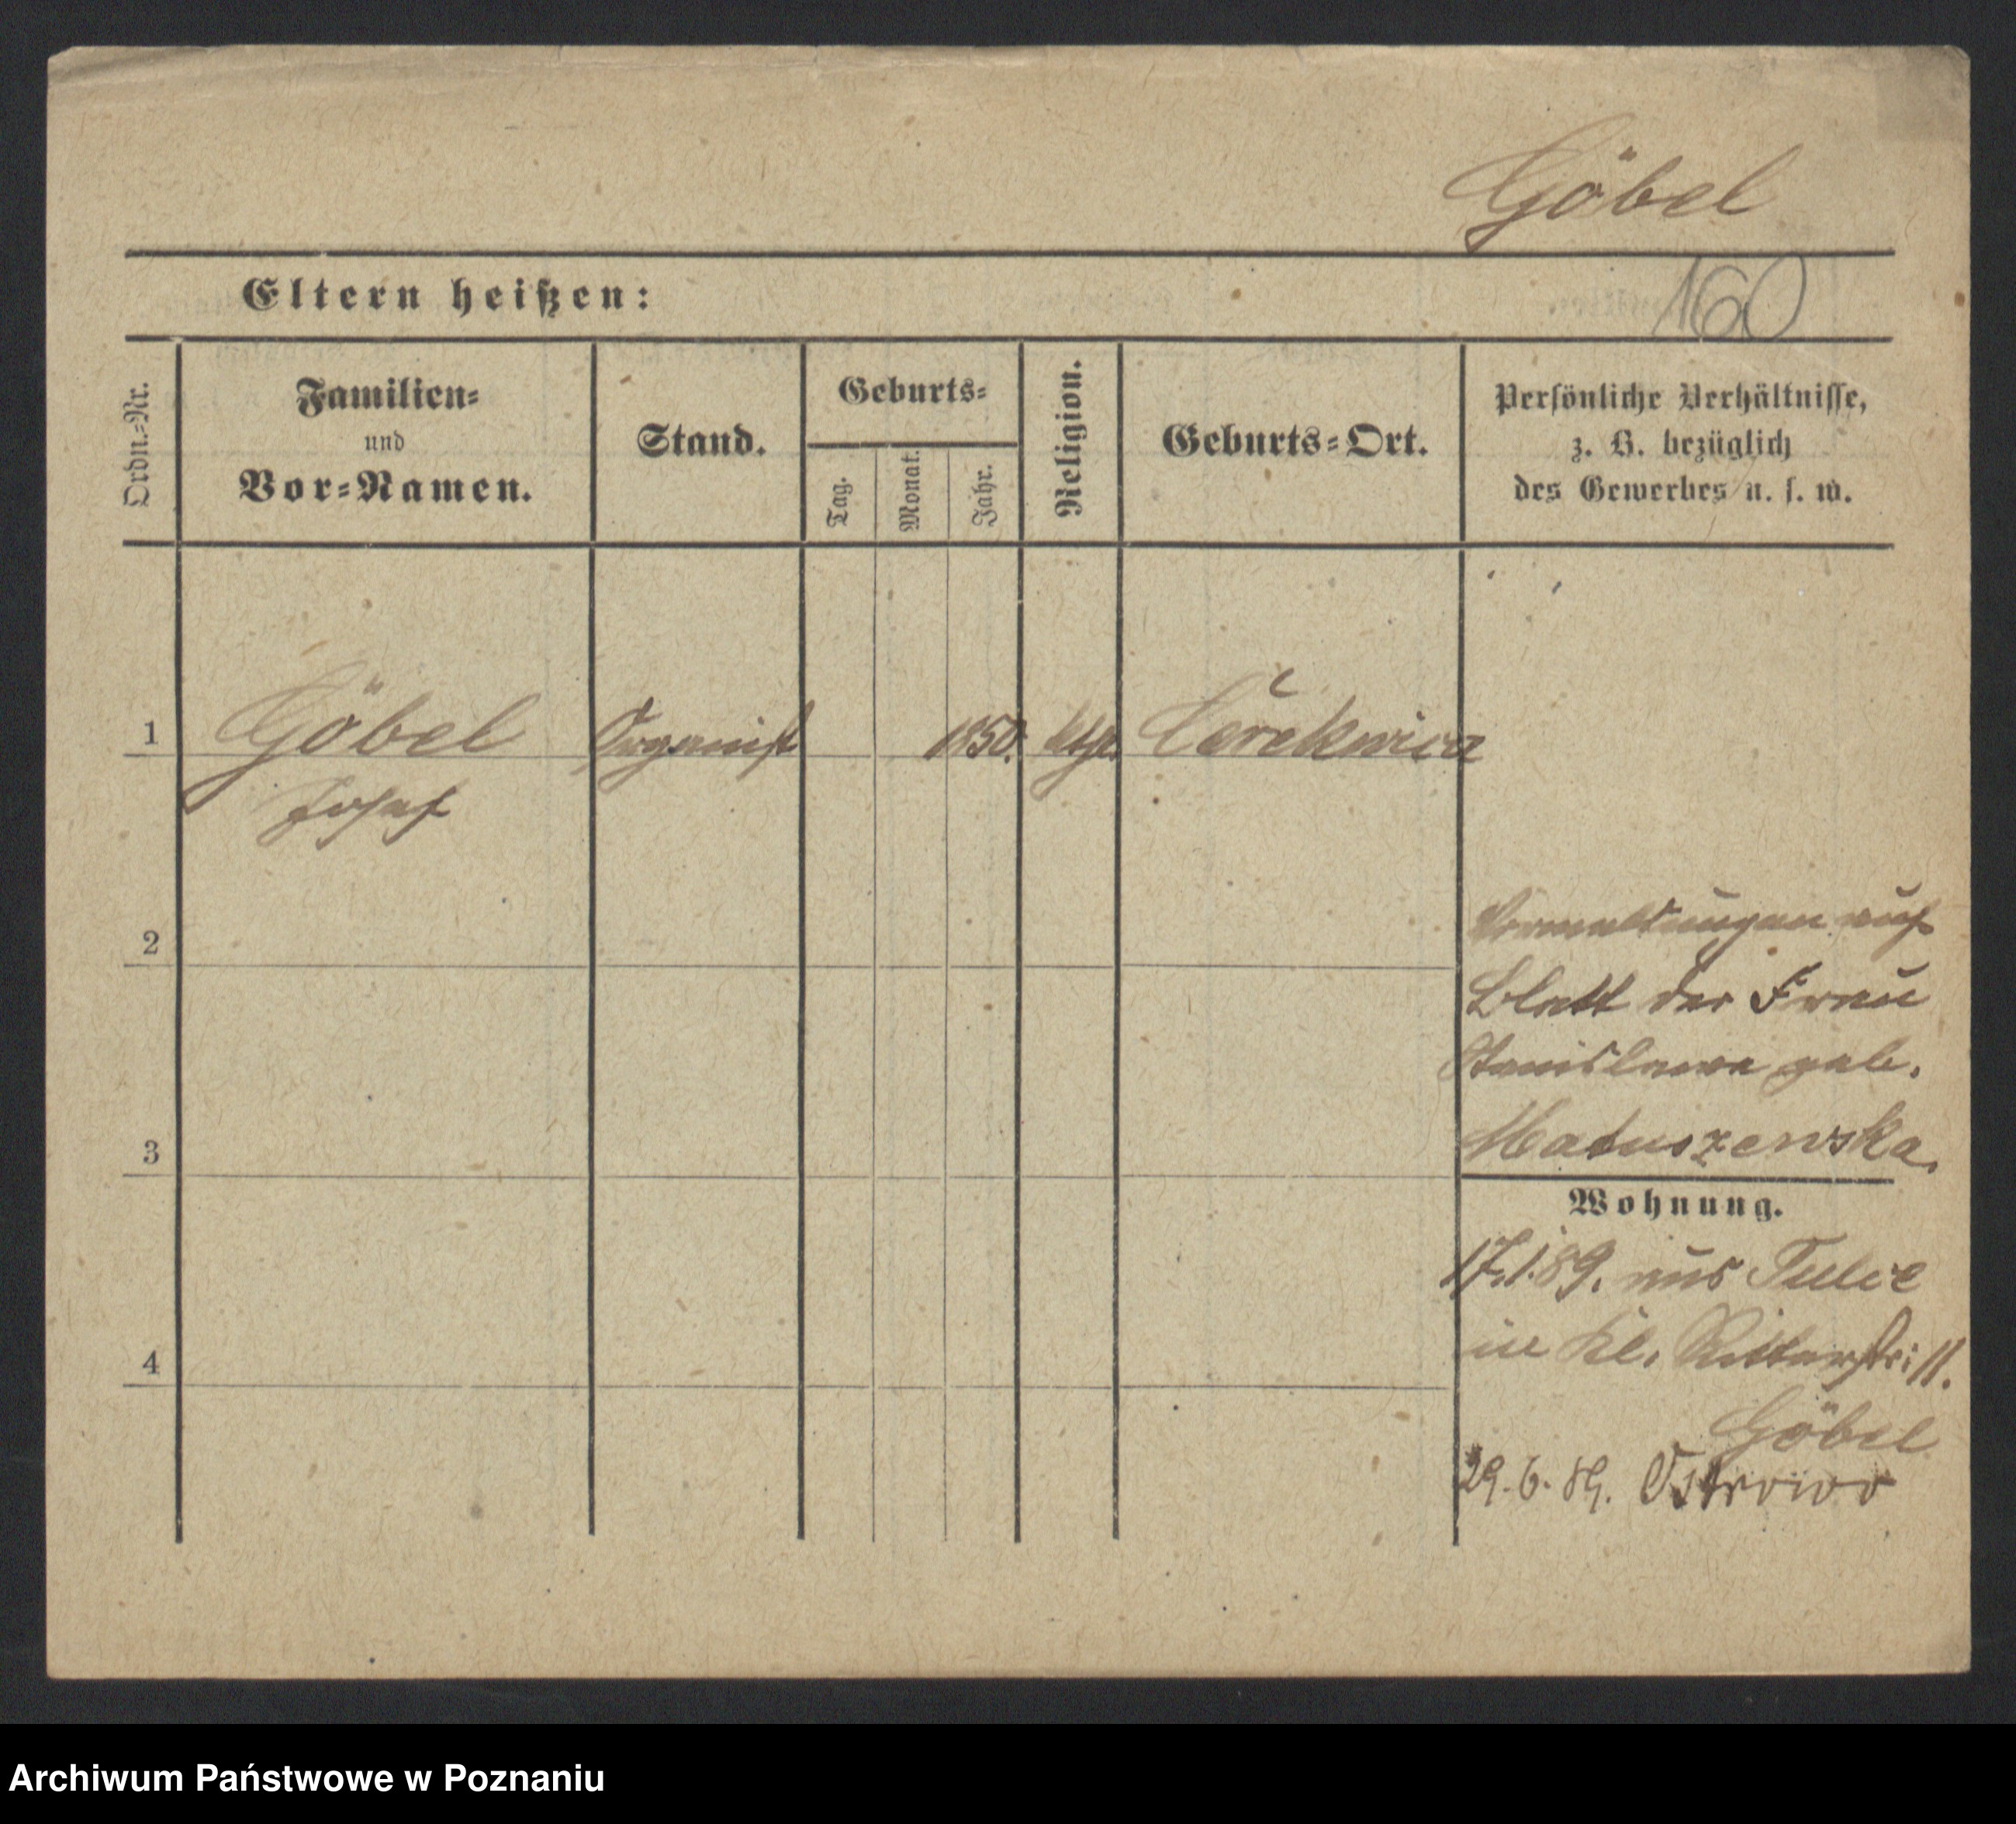 Göbel
160
Eltern heißen:
Ordn.-Nr.
Familien-
und
Vor-Namen.
Stand.
Geburts-
Tag.
Monat.
Jahr.
Religion.
Geburts-Ort.
Persönliche Verhältnisse,
z. B. bezüglich
des Gewerbes u. s. w.
1
Göbel
Josef
Organist
1850.
kth.
Cerekwica
2
3
4
Vormeldungen auf
Blatt der Frau
Stanislawa geb.
Matuszewska.
Wohnung.
17.1.89. aus Tulce
in Kl. Ritterstr: 11.
Göbel
29.6.89. Ostrowo
Archiwum Państwowe w Poznaniu